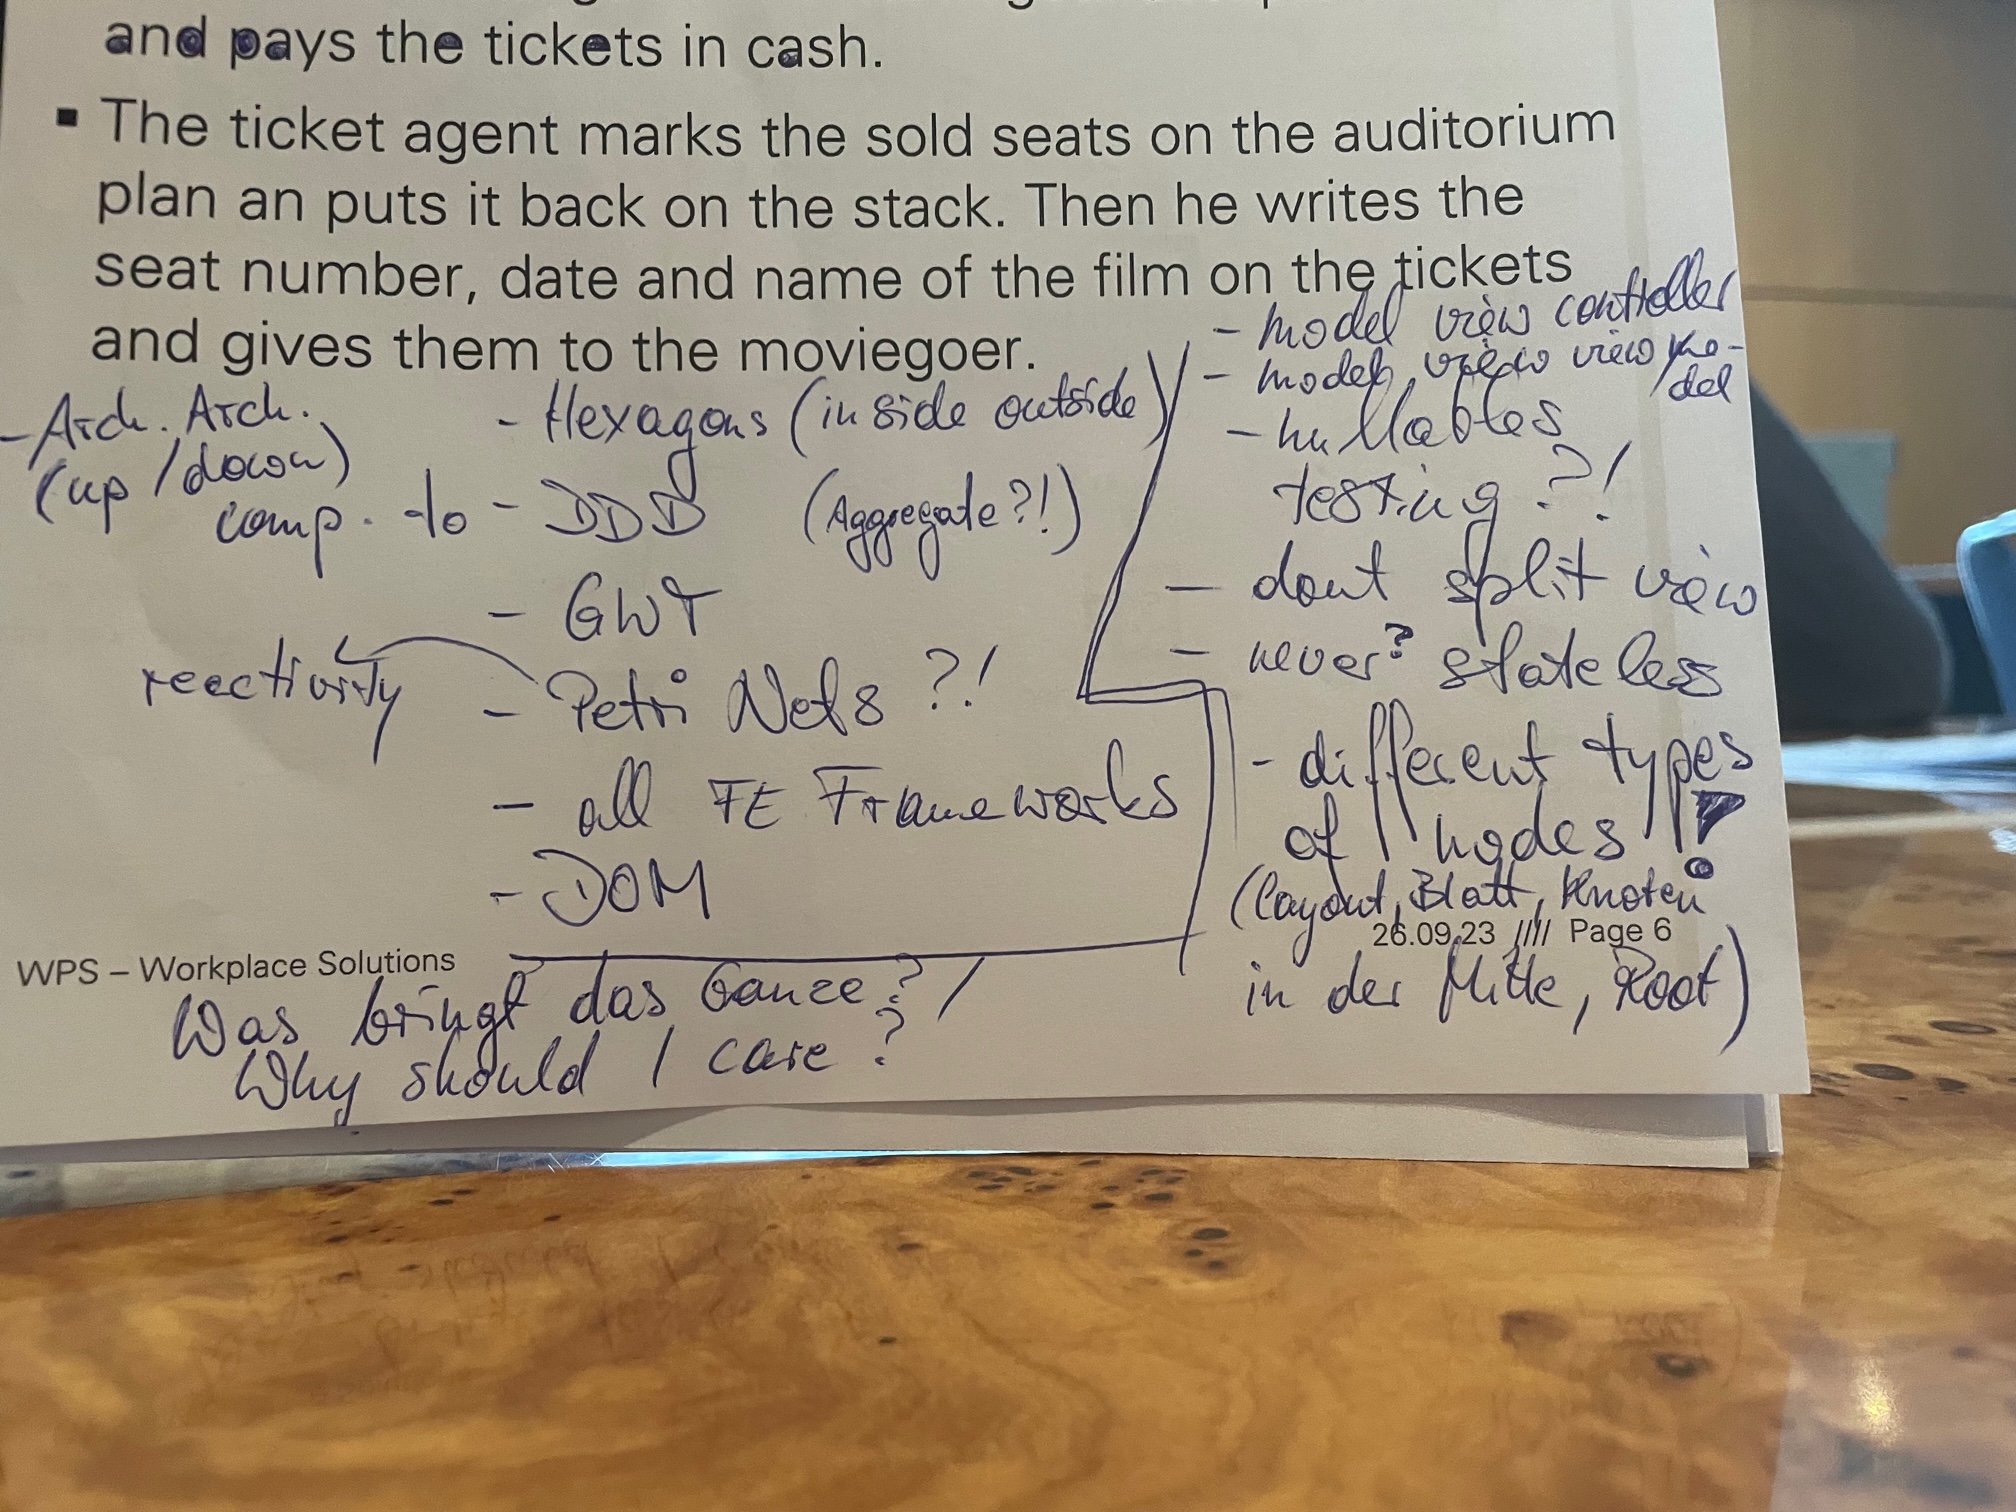 and pays the tickets in cash.
▪ The ticket agent marks the sold seats on the auditorium
plan an puts it back on the stack. Then he writes the
seat number, date and name of the film on the tickets
and gives them to the moviegoer.
- Arch. Arch.
(up / down)
comp. to
- Hexagons (inside outside)
- DDD (Aggregate?!)
- GWT
reactivity
- Petri Nets ?!
- all FE Frameworks
- DOM
- model view controller
- model view view mo-
del
- nullables
testing ?!
- dont split view
- never? stateless
- different types
of nodes !?
(Layout, Blatt, Knoten
in der Mitte, Root)
WPS – Workplace Solutions
26.09.23 //// Page 6
Was bringt das Ganze?!
Why should I care ?